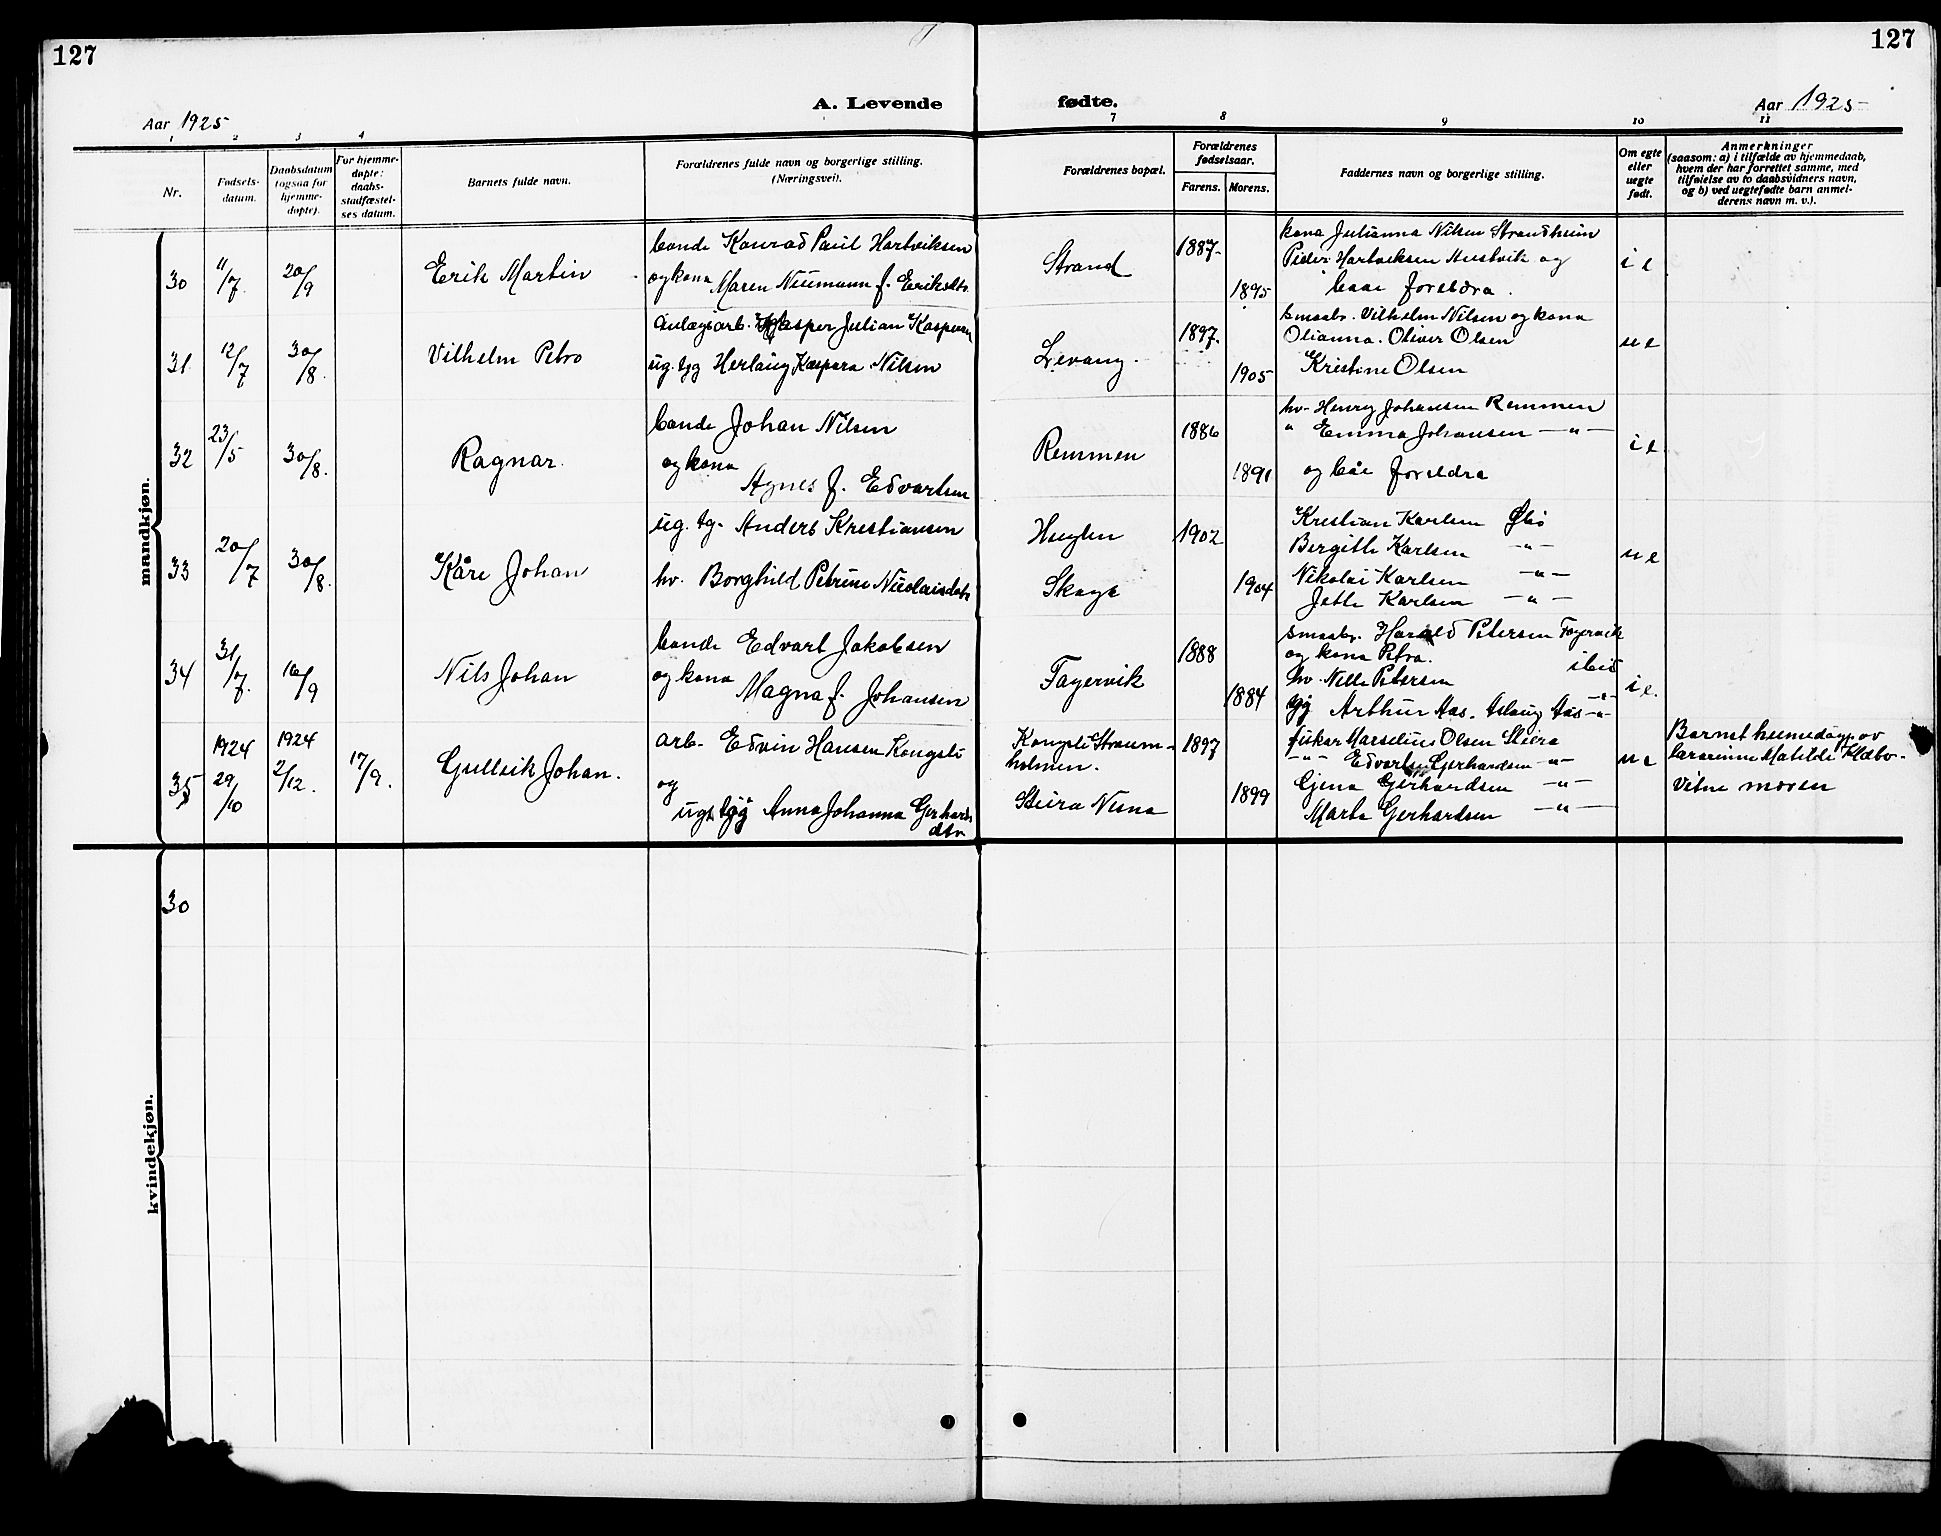 127
127
A. Levende
fødte.
Aar 1925
Aar 1925
1
2
3
4
7
8
9
10
11
Nr.
Fødsels-
datum.
Daabsdatum
(ogsaa for
hjemme-
døpte).
For hjemme-
døpte:
daabs-
stadfæstel-
ses datum.
Barnets fulde navn.
Forældrenes fulde navn og borgerlige stilling.
(Næringsvei).
Forældrenes bopæl.
Forældrenes
fødselsaar.
Farens.
Morens.
Faddernes navn og borgerlige stilling.
Om egte
eller
uegte
født.
Anmerkninger
(saasom: a) i tilfælde av hjemmedaab,
hvem der har forrettet samme, med
tilføielse av to daabsvidners navn,
og b) ved uegtefødte barn anmel-
derens navn m. v.).
mandkjøn.
30
11/7
20/9
Erik Martin
bonde Konrad Paul Hartviksen
og kona Maren Neumann f. Eriksdtr.
Strand
1887
1895
kona Julianna Nilsen Strandheim
Peder Hartviksen Husvik og
baae foreldra.
i e
31
12/7
30/8
Vilhelm Petro
anlægsarb. Kasper Julian Kaspersen
ug. tjg Herlaug Kaspara Nilsen
Levang.
1897
1905
smaabr. Vilhelm Nilsen og kona
Olianna. Oliver Olsen
Kristine Olsen
u e
32
23/5
30/8.
Ragnar.
bonde Johan Nilsen
og kona
Agnes f. Edvartsen
Remmen
1886
1891
hv. Henry Johansen Remmen
" Emma Johansen — " —
og båe foreldra
i e
33
20/7
30/8.
Kåre Johan
ug. tg. Anders Kristiansen
hv. Borghild Petrine Nicolaisdtr
Huglen
Skaga
1902
1904
Kristian Karlsen Øbø
Bergith Karlsen — " —
Nikolai Karlsen — " —
Jette Karlsen — " —
u e
34
31/7.
16/9
Nils Johan
bonde Edvart Jakobsen
og kona
Magna f. Johansen
Fagervik
1888
1884
smaabr. Harald Petersen Fagervik
og kona Petra. ibid
hv. Nelle Petersen — " —
tjg Arthur Aas. Aslaug Aas — " —
i e.
35
1924
29/10
1924
2/12.
17/9.
Gulleik Johan.
arb. Edvin Hansen Kongsli
og
ugt tjg Anna Johanna Gerhards
dtr
Kongsli Straum-
holmen.
Steira Nesna
1897
1899
fisker Marselius Olsen Steira
— " — Edvartsen Gerhardsen — " —
Gjena Gerhardsen — " —
Marta Gerhardsen — " —
u e
Barnet heimedøypt ov
lærarinne Matilde Klæbo.
Vitne moren
kvindekjøn.
30